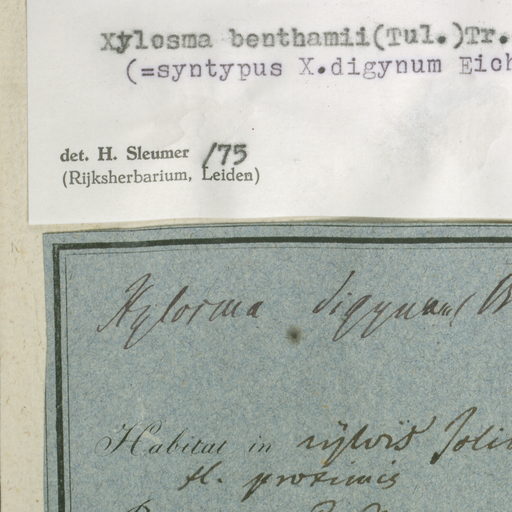 Xylosma benthamii(Tul.)Tr.
(=syntypus X.digynum Eich
det. H. Sleumer /75
(Rijksherbarium, Leiden)
Xylosma digynum
Habitat in sylvis
fl. proximis